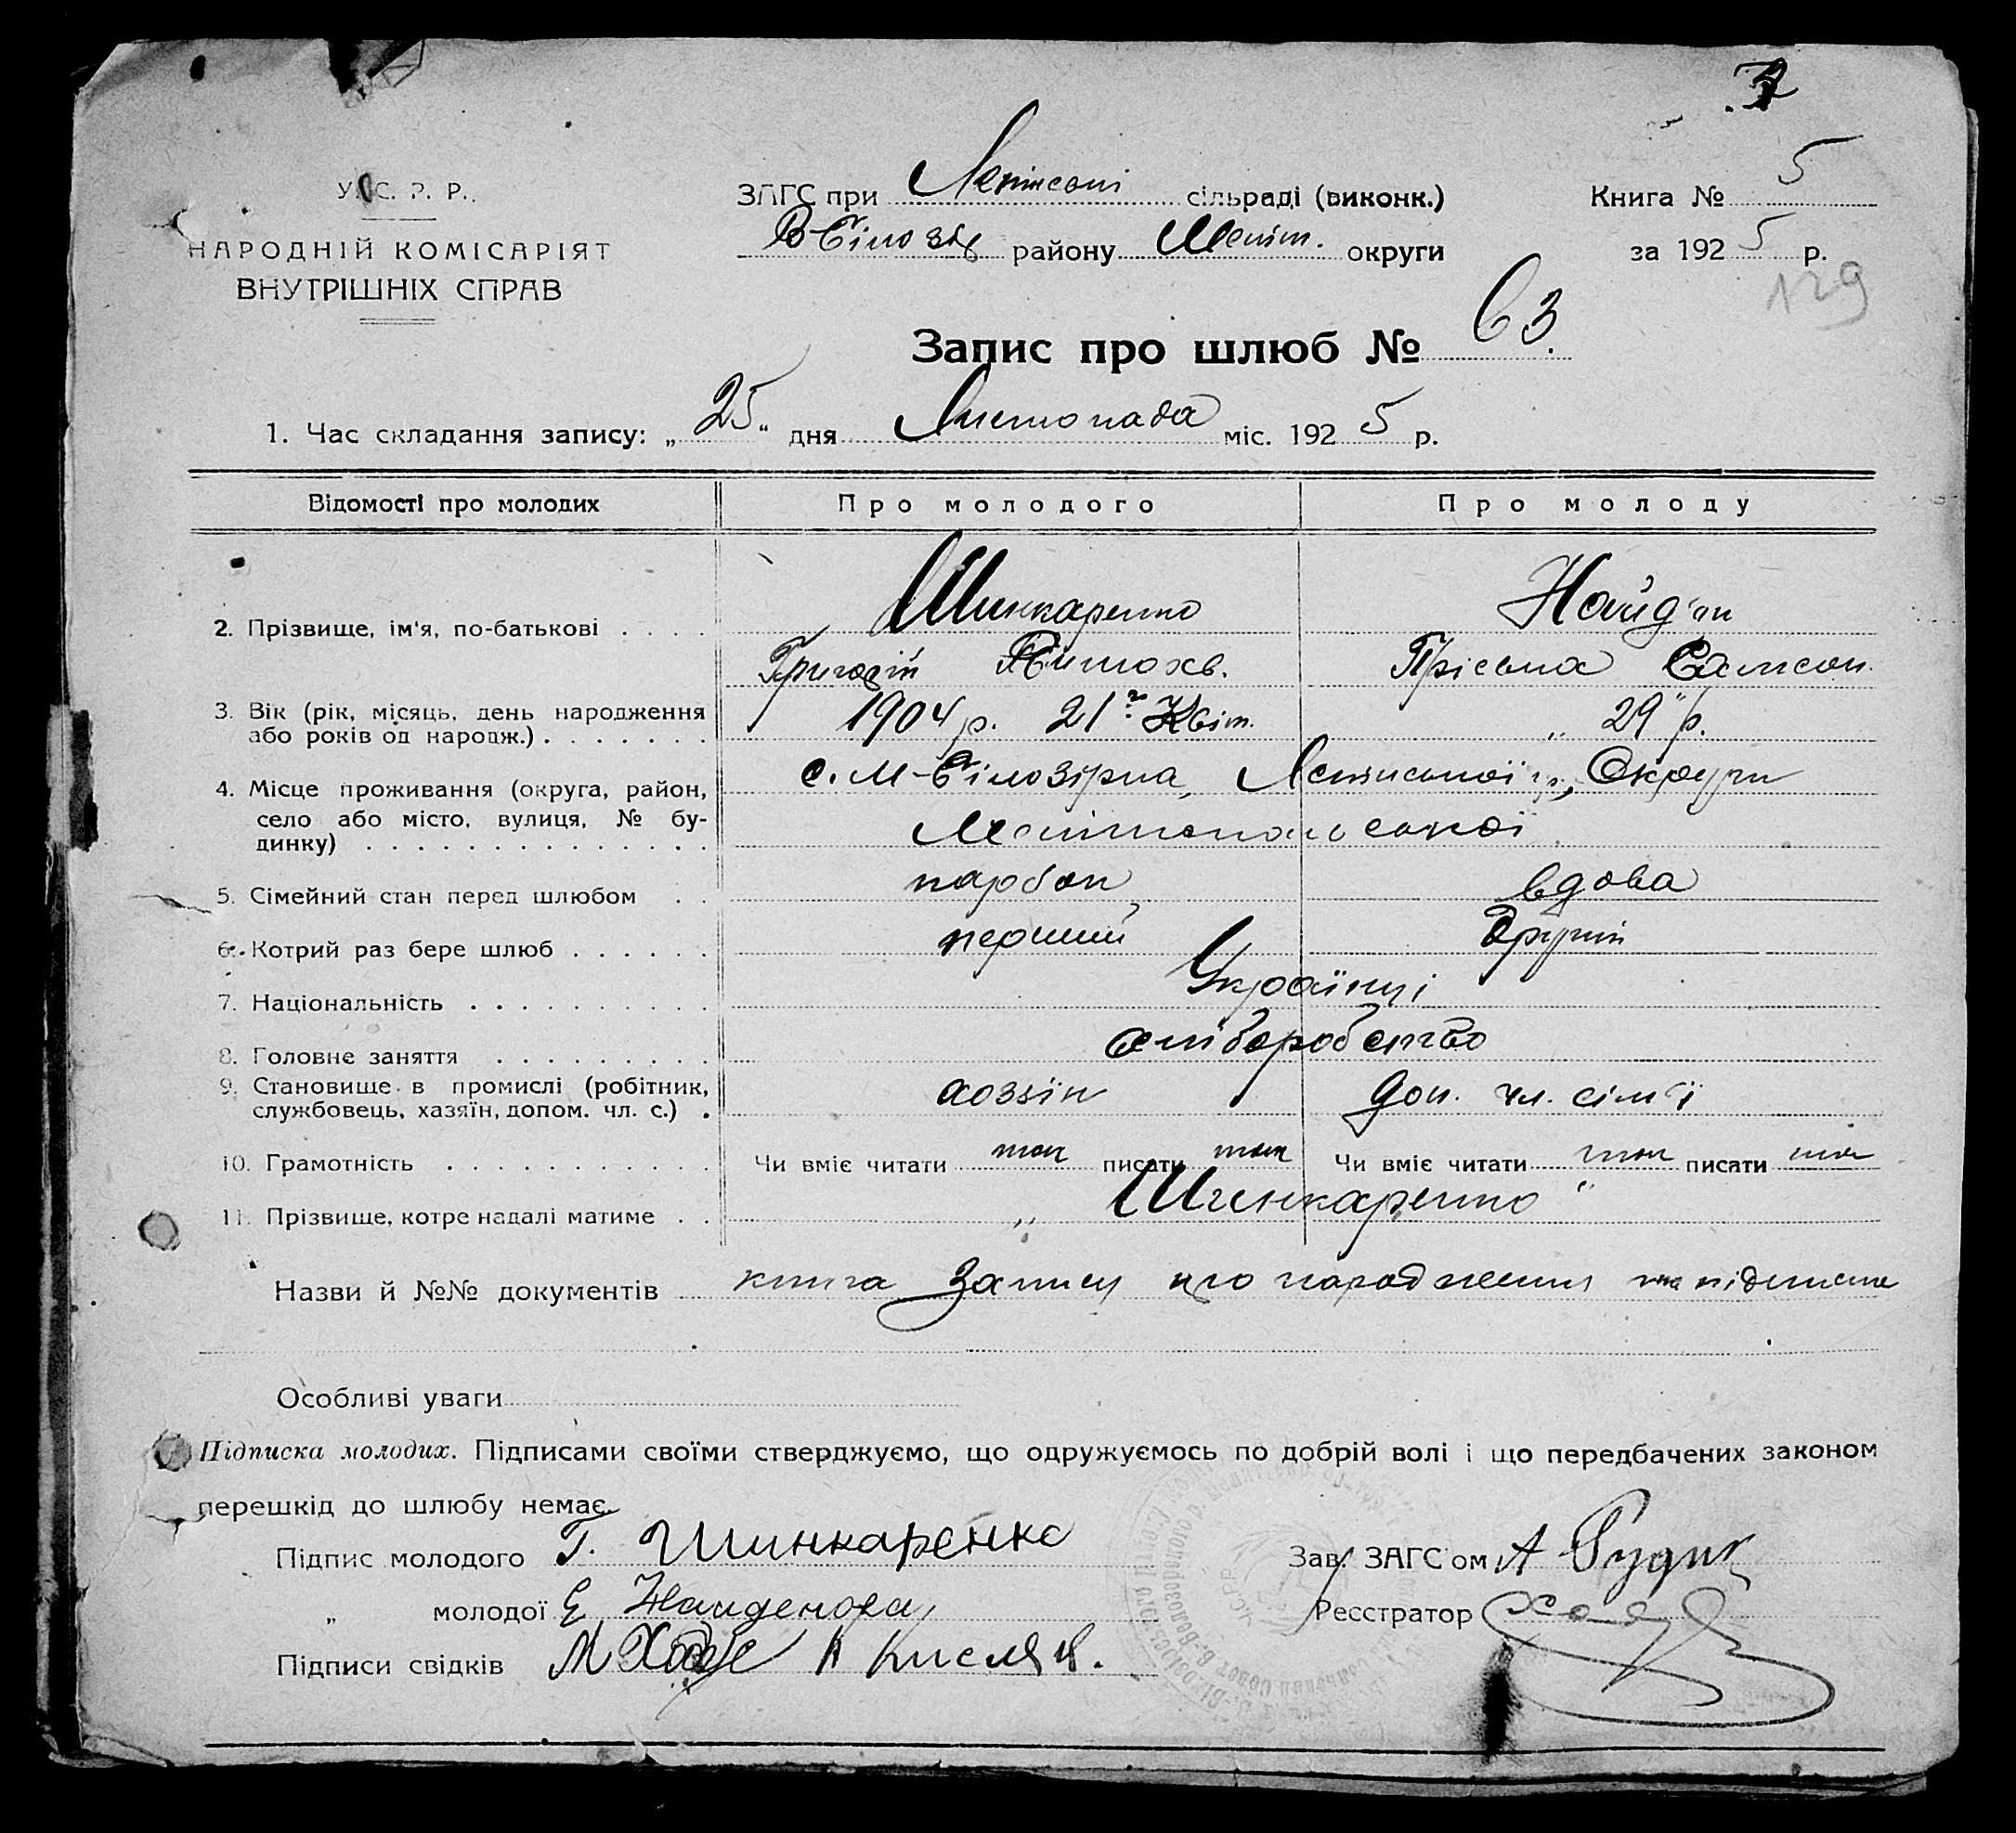 У. С. Р. Р.
НАРОДНІЙ КОМІСАРІЯТ
ВНУТРІШНІХ СПРАВ
ЗАГС при сільраді (виконк.)
району Меліт. округи
Книга № 5
за 1925 р.
129
Запис про шлюб № 63.
1. Час складання запису: „25" дня Листопада міс. 1925 р.
Відомості про молодих Про молодого Про молоду
2. Прізвище, ім'я, по-батькові . . . . Шинкаренко Найд'он
Григорій Пріська Самсон.
3. Вік (рік, місяць, день народження або років од народж.) . . . . . . . 1904 р. 21го Квіт. „29" р.
4. Місце проживання (округа, район, село або місто, вулиця, № будинку) . . . . . . с. М-Білозірка, Округи
Мелітопольської
5. Сімейний стан перед шлюбом . . парубок вдова
6. Котрий раз бере шлюб . . . . . . перший другий
7. Національність . . . . . . . . . . Українці
8. Головне заняття . . . . . . . . . хліборобство
9. Становище в промислі (робітник, службовець, хазяїн, допом. чл. с.) . хозяїн доп. чл. сім'ї
10. Грамотність . . . . . . . . . . . Чи вміє читати так писати так Чи вміє читати так писати так
11. Прізвище, котре надалі матиме . . „Шинкаренко"
Назви й №№ документів книга запису про народження та підписка
Особливі уваги
Підписка молодих. Підписами своїми стверджуємо, що одружуємось по добрій волі і що передбачених законом
перешкід до шлюбу немає.
Підпис молодого Г. Шинкаренко
Зав. ЗАГС'ом А Рудик
„ молодої Е Найденова
Реєстратор
Підписи свідків М